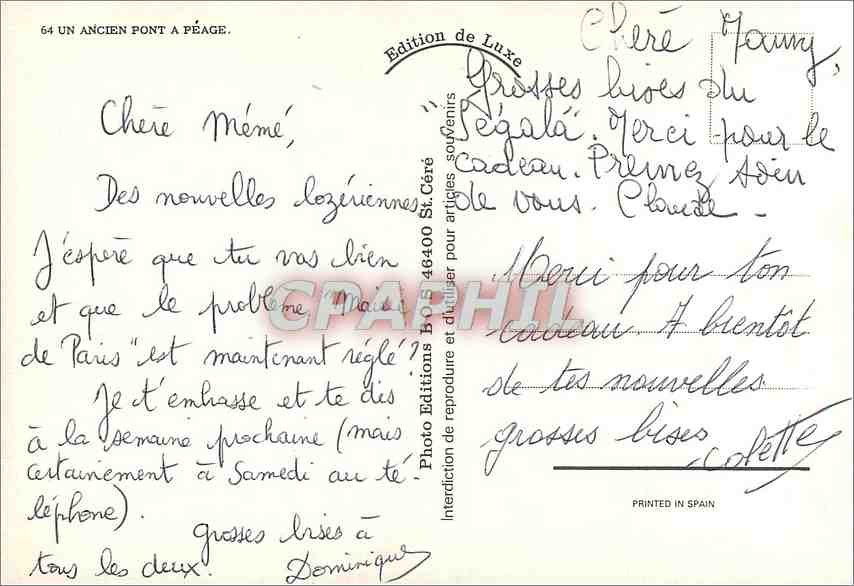 64 UN ANCIEN PONT A PÉAGE.
Chère Mémé,
Des nouvelles lozériennes
J'espère que tu vas bien
et que le problème "Mairie
de Paris" est maintenant réglé?
Je t'embrasse et te dis
à la semaine prochaine (mais
certainement à Samedi au té-
léphone).
grosses bises à
tous les deux. Dominique
Edition de Luxe
Photo Editions B O S 46400 St. Céré
Interdiction de reproduire et d'utiliser pour articles souvenirs
CPAPHIL
Chère
Grosses bises du
"Ségala". Merci pour le
cadeau. Prenez soin
de vous. Claude -
Merci pour ton
cadeau. A bientôt
de tes nouvelles
grosses bises
Colette
PRINTED IN SPAIN